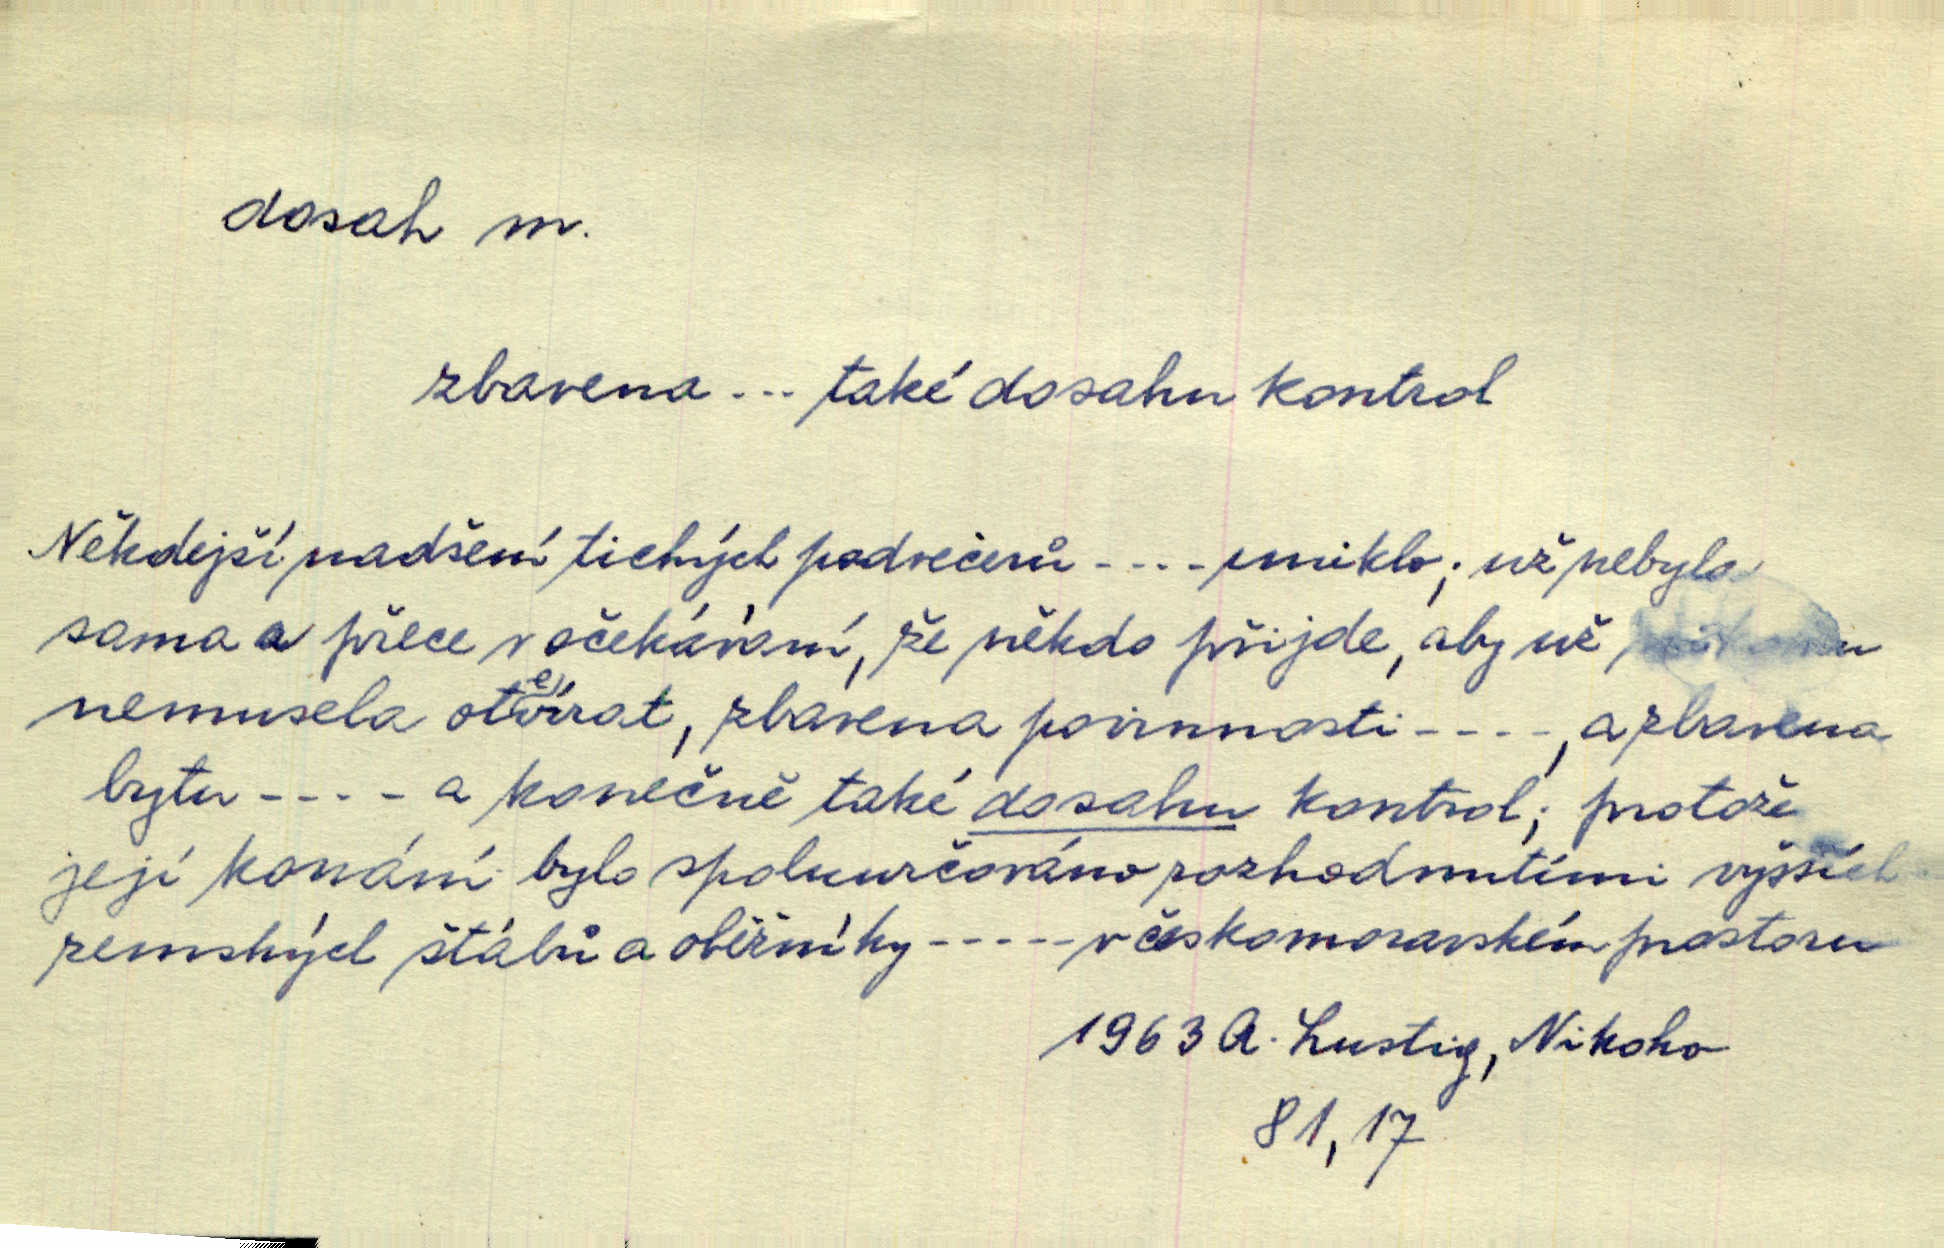 dosah m.
zbavena --- také dosahu kontrol
Někdejší nadšení tichých podvečerů ---- uniklo; už nebyla
sama a přece v očekávání, že někdo přijde, aby už
nemusela otvírat, zbavena povinnosti ----, a zbavena
bytu ---- a konečně také dosahu kontrol; protože
její konání bylo spoluurčováno rozhodnutími vyšších
zemských štábů a oběžníky ----- v českomoravském prostoru
1963 A. Lustig, Nikoho
81, 17